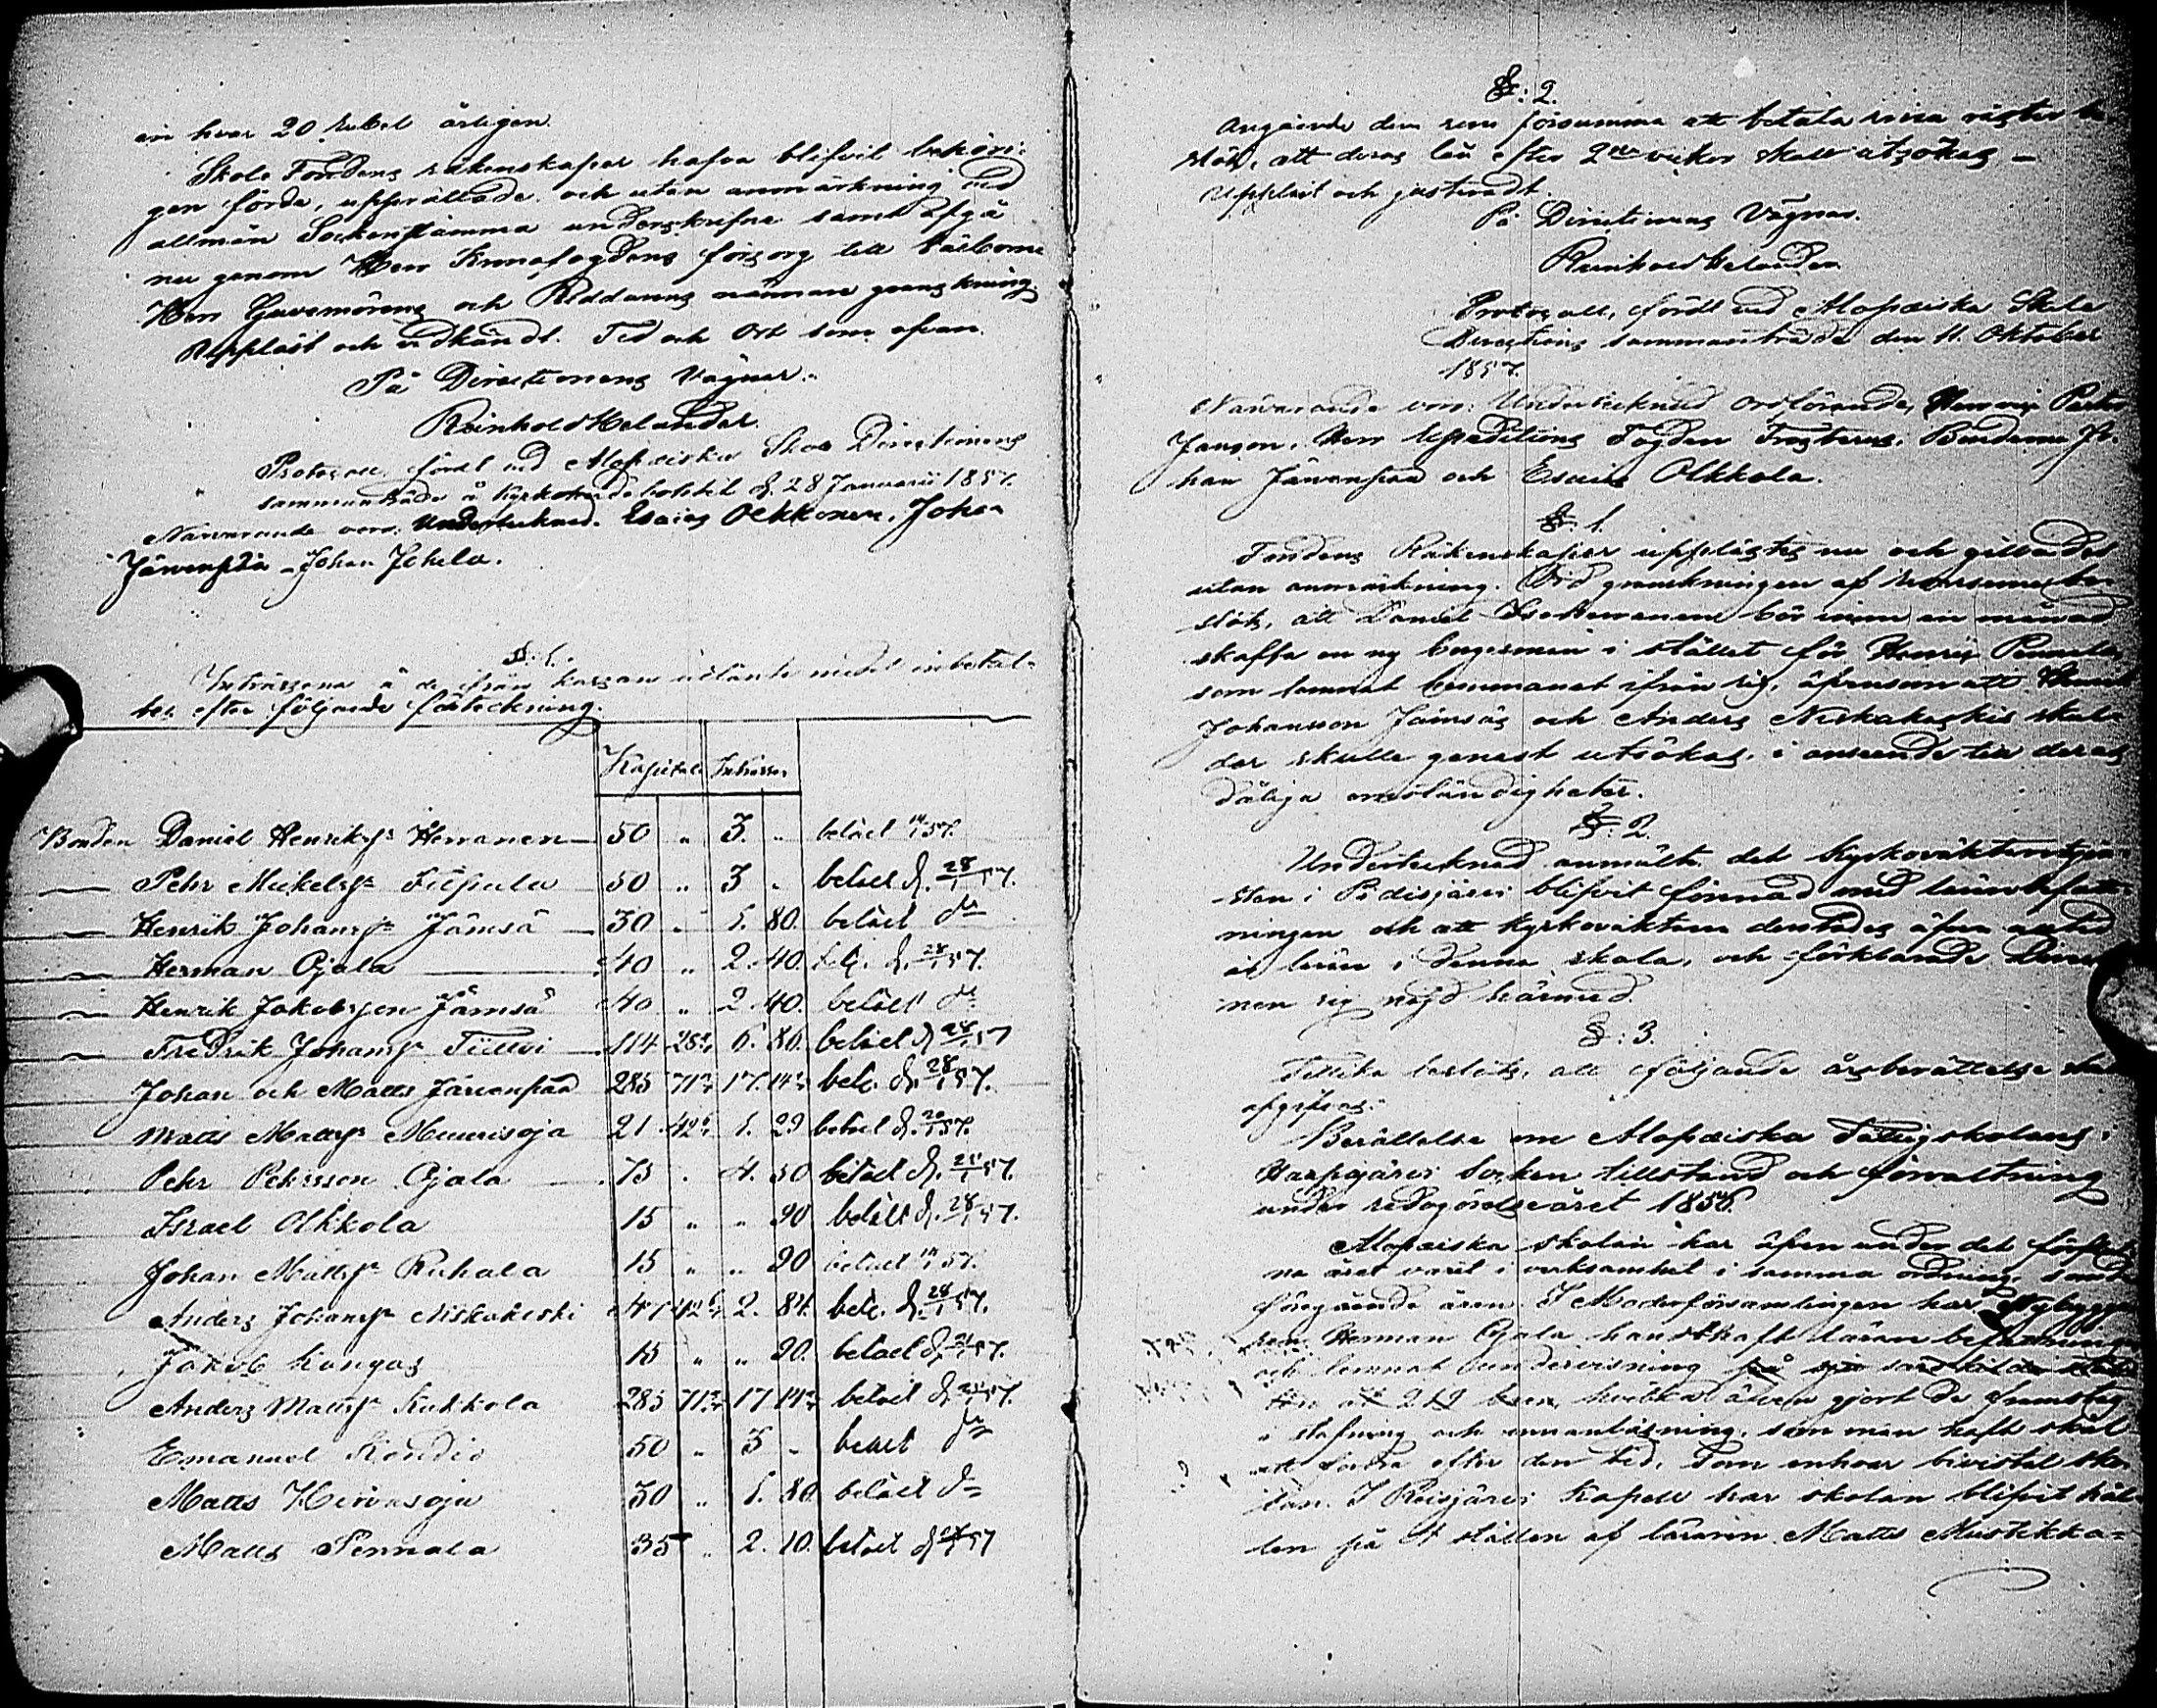 en hvar 20 rubel årligen.
Skole Fondens räkenskaper hafva blifvit behöri-
gen förda, upprättade och utan anmärkning vid
allmän Sockenstämma underskrefne samt afgå
nu genom Herr Kronofogdens försorg till
Herr Guvernörens och Riddarens nämnare granskning.
Uppläst och vidkändt. Tid och Ort som ofvan.
På Directionens Vägnar.
Reinhold Helander
Protocoll, fördt vid Alopæiska Skole Directionens
sammanträde å Kyrkoherdebohlet d. 28 Januarii 1857.
Närvarande voro: Undertecknad. Esaias Olkkonen, Johan
Järvenpää - Johan Jokela.
§. 1.
Intressena å de ifrån kassan utlånte medel inbetal-
tes efter följande förteckning.
Kapital Intresse
Bonden Daniel Henriksson Herranen 50 " 3. " betalt 14/1 57.
— Pehr Mickelsson Tilpala 50 " 3 " betalt d. 28/1 57.
— Henrik Johansson Jämsä 30 " 1. 80. betalt do
— Herman Ojala 40 " 2. 40. bet. d. 28/1 57.
— Henrik Jakobsson Jämsä 40 " 2. 40. betalt do
— Fredrik Johansson 114 28 6. 86. betalt d. 28/1 57
Johan och Matts Järvenpää 285 71 17. 14 bet. d. 28/1 57.
Matts Mattsson Muurisoja 21 42 1. 29 betalt d. 57.
Pehr Pehrsson Ojala 75 . 4. 50 betalt d. 57.
Israel Olkkola 15 " " 90 betalt d. 28/1 57.
Johan Mattsson Ruhala 15 " " 90 betalt 14/1 57.
Anders Johansson Niskakoski 47 42 2. 84. bet. d. 28/1 57.
Jakob Kangas 15 " " 90. betalt d. 57.
Anders Mattsson Kukkola 285 71 17 14 betalt d. 57.
Emanuel 50 " 3 - betalt do
Matts Hirvasoja 30 " 1. 80 betalt do
Matts Pennala 35 " 2. 10. betalt d. 57
§: 2.
Angående dem som försumma att betala sina räster be-
slöts, att deras lån efter 2ne veckor skall utsökas –
Uppläst och justeradt.
På Directionens Vägnar.
Reinhold Helander
Protocoll, fördt vid Alopæiska Skole
Directions sammanträde den 11. Oktober
1857.
Närvarande voro: Undertecknad Ordförande, Herr
Janson, Herr Expeditions Fogden Frosterus, Bönderne Jo-
han Järvenpää och Esaias Olkkola.
§. 1.
Fondens Räkenskaper upplästes nu och gillades
utan anmärkning. Vid granskningen af be-
slöts, att Daniel Herranen bör inom en månad
skaffa en ny borgesman i stället för Henrik Pennala,
som lemnat hemmanet ifrån sig, äfvensom att Henrik
Johansson Jämsäs och Anders Niskakoskis skul-
der skulle genast utsökas, i anseende till deras
dåliga omständigheter.
§: 2.
Undertecknad anmälte, det Kyrkoväktaretjen-
sten i Pidisjärvi blifvit förenad med lärarebefatt-
ningen och att Kyrkoväktaren derstädes äfven
är lärare i denna skola, och förklarade
nen sig nöjd härmed.
§: 3.
Tillika beslöts, att följande årsberättelse
afgifvas:
Berättelse om Alopæiska Fattigskolans i
Haapajärvi Socken tillstånd och förvaltning
under redogörelseåret 1856.
Alopæiska skolan har äfven under det förflut-
na året varit i verksamhet i samma ordning, som
föregående åren. I Moderförsamlingen har Nybygga-
ren Herman Ojala haft lärare befattningen
och lemnat undervisning
hvilka äfven gjort de framsteg
i stafning och innanläsning, som man haft skäl
att fordra efter den tid, som enhvar bivistat sko-
lan. I Reisjärvi Kapell har skolan blifvit hål-
len på 4 ställen af läraren Matts Mustikka-